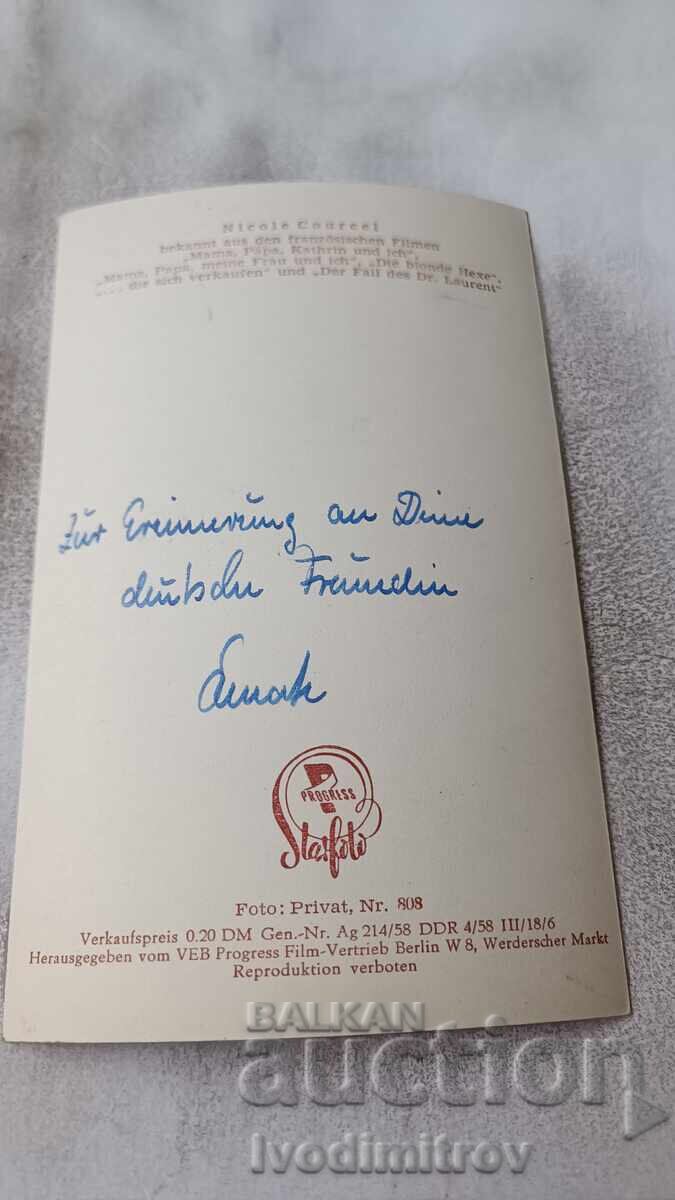 Nicole Courcel
bekannt aus den französischen Filmen
„Mama, Papa, Kathrin und ich“,
„Mama, Papa, meine Frau und ich“, „Die blonde Hexe“,
die sich verkaufen“ und „Der Fall des Dr. Laurent“
Zur Erinnerung an Deine
deutsche Freundin
PROGRESS
Starfoto
Foto: Privat, Nr. 808
Verkaufspreis 0.20 DM Gen.-Nr. Ag 214/58 DDR 4/58 III/18/6
Herausgegeben vom VEB Progress Film-Vertrieb Berlin W 8, Werderscher Markt
Reproduktion verboten
BALKAN
auction
Ivodimitrov